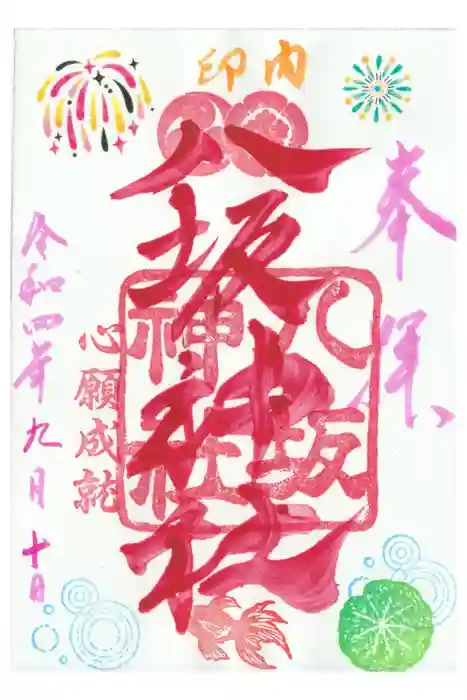 奉拝
印内
八坂神社
八坂
神社
心願成就
令和四年九月十日